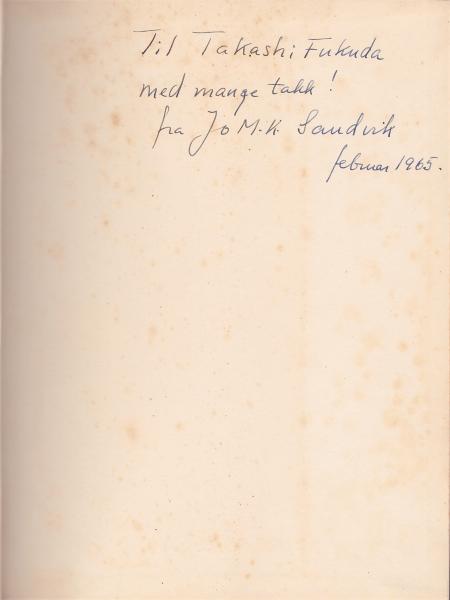 Til Takashi Fukuda
med mange takk!
fra Jo M.K. Sandvik
februar 1965.